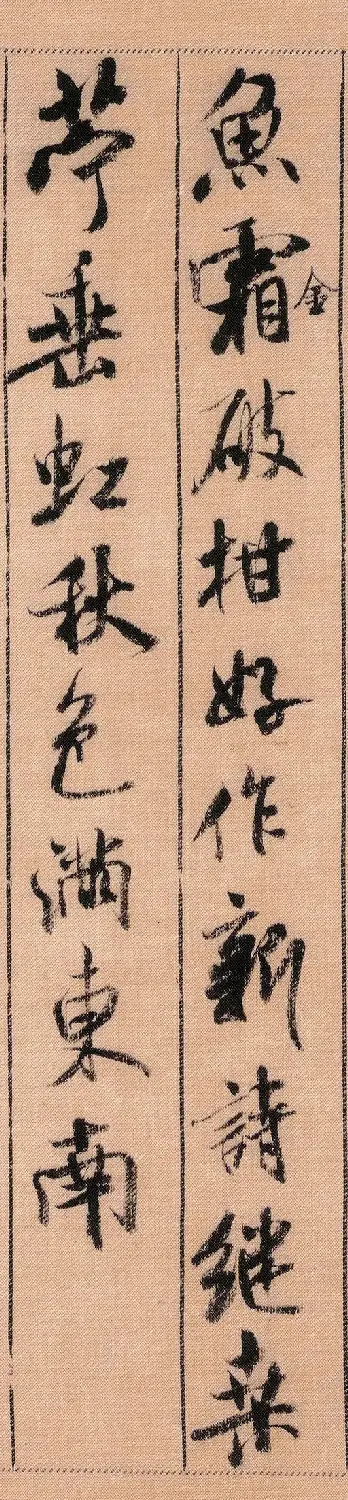 魚霜金破柑好作新詩継桒
苧垂虹秋色満東南